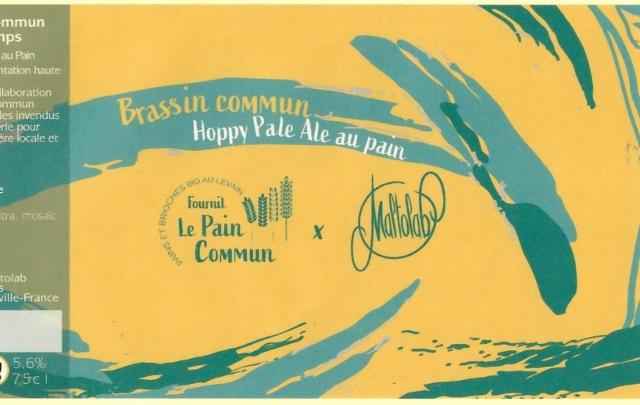 ommun
mps
au Pain
ntation haute
llaboration
ommun
les invendus
erie pour
ère locale et
e
itra, mosaic
tolab
s
ville-France
5,6%
75cl
Brassin commun
Hoppy Pale Ale au pain
PAINS ET BRIOCHES BIO AU LEVAIN
Fournil
Le Pain
Commun
x
Maltolab